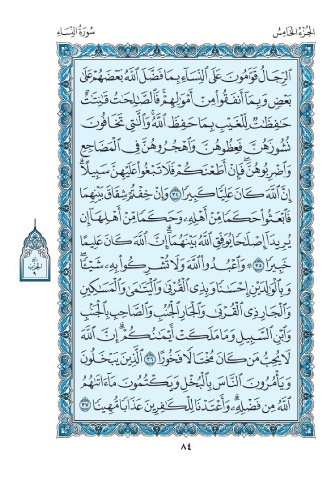 الجزء الخامس
سورة النساء
ٱلرِّجَالُ قَوَّٰمُونَ عَلَى ٱلنِّسَآءِ بِمَا فَضَّلَ ٱللَّهُ بَعْضَهُمْ عَلَىٰ
بَعْضٍ وَبِمَآ أَنفَقُوا۟ مِنْ أَمْوَٰلِهِمْ ۚ فَٱلصَّٰلِحَٰتُ قَٰنِتَٰتٌ
حَٰفِظَٰتٌ لِّلْغَيْبِ بِمَا حَفِظَ ٱللَّهُ ۚ وَٱلَّٰتِى تَخَافُونَ
نُشُوزَهُنَّ فَعِظُوهُنَّ وَٱهْجُرُوهُنَّ فِى ٱلْمَضَاجِعِ
وَٱضْرِبُوهُنَّ ۖ فَإِنْ أَطَعْنَكُمْ فَلَا تَبْغُوا۟ عَلَيْهِنَّ سَبِيلًا ۗ
إِنَّ ٱللَّهَ كَانَ عَلِيًّا كَبِيرًا ٣٤ وَإِنْ خِفْتُمْ شِقَاقَ بَيْنِهِمَا
فَٱبْعَثُوا۟ حَكَمًا مِّنْ أَهْلِهِۦ وَحَكَمًا مِّنْ أَهْلِهَآ إِن
يُرِيدَآ إِصْلَٰحًا يُوَفِّقِ ٱللَّهُ بَيْنَهُمَآ ۗ إِنَّ ٱللَّهَ كَانَ عَلِيمًا
خَبِيرًا ٣٥ ۞ وَٱعْبُدُوا۟ ٱللَّهَ وَلَا تُشْرِكُوا۟ بِهِۦ شَيْـًٔا ۖ
وَبِٱلْوَٰلِدَيْنِ إِحْسَٰنًا وَبِذِى ٱلْقُرْبَىٰ وَٱلْيَتَٰمَىٰ وَٱلْمَسَٰكِينِ
وَٱلْجَارِ ذِى ٱلْقُرْبَىٰ وَٱلْجَارِ ٱلْجُنُبِ وَٱلصَّاحِبِ بِٱلْجَنۢبِ
وَٱبْنِ ٱلسَّبِيلِ وَمَا مَلَكَتْ أَيْمَٰنُكُمْ ۗ إِنَّ ٱللَّهَ
لَا يُحِبُّ مَن كَانَ مُخْتَالًا فَخُورًا ٣٦ ٱلَّذِينَ يَبْخَلُونَ
وَيَأْمُرُونَ ٱلنَّاسَ بِٱلْبُخْلِ وَيَكْتُمُونَ مَآ ءَاتَىٰهُمُ
ٱللَّهُ مِن فَضْلِهِۦ ۗ وَأَعْتَدْنَا لِلْكَٰفِرِينَ عَذَابًا مُّهِينًا ٣٧
الحزب
٩
٨٤